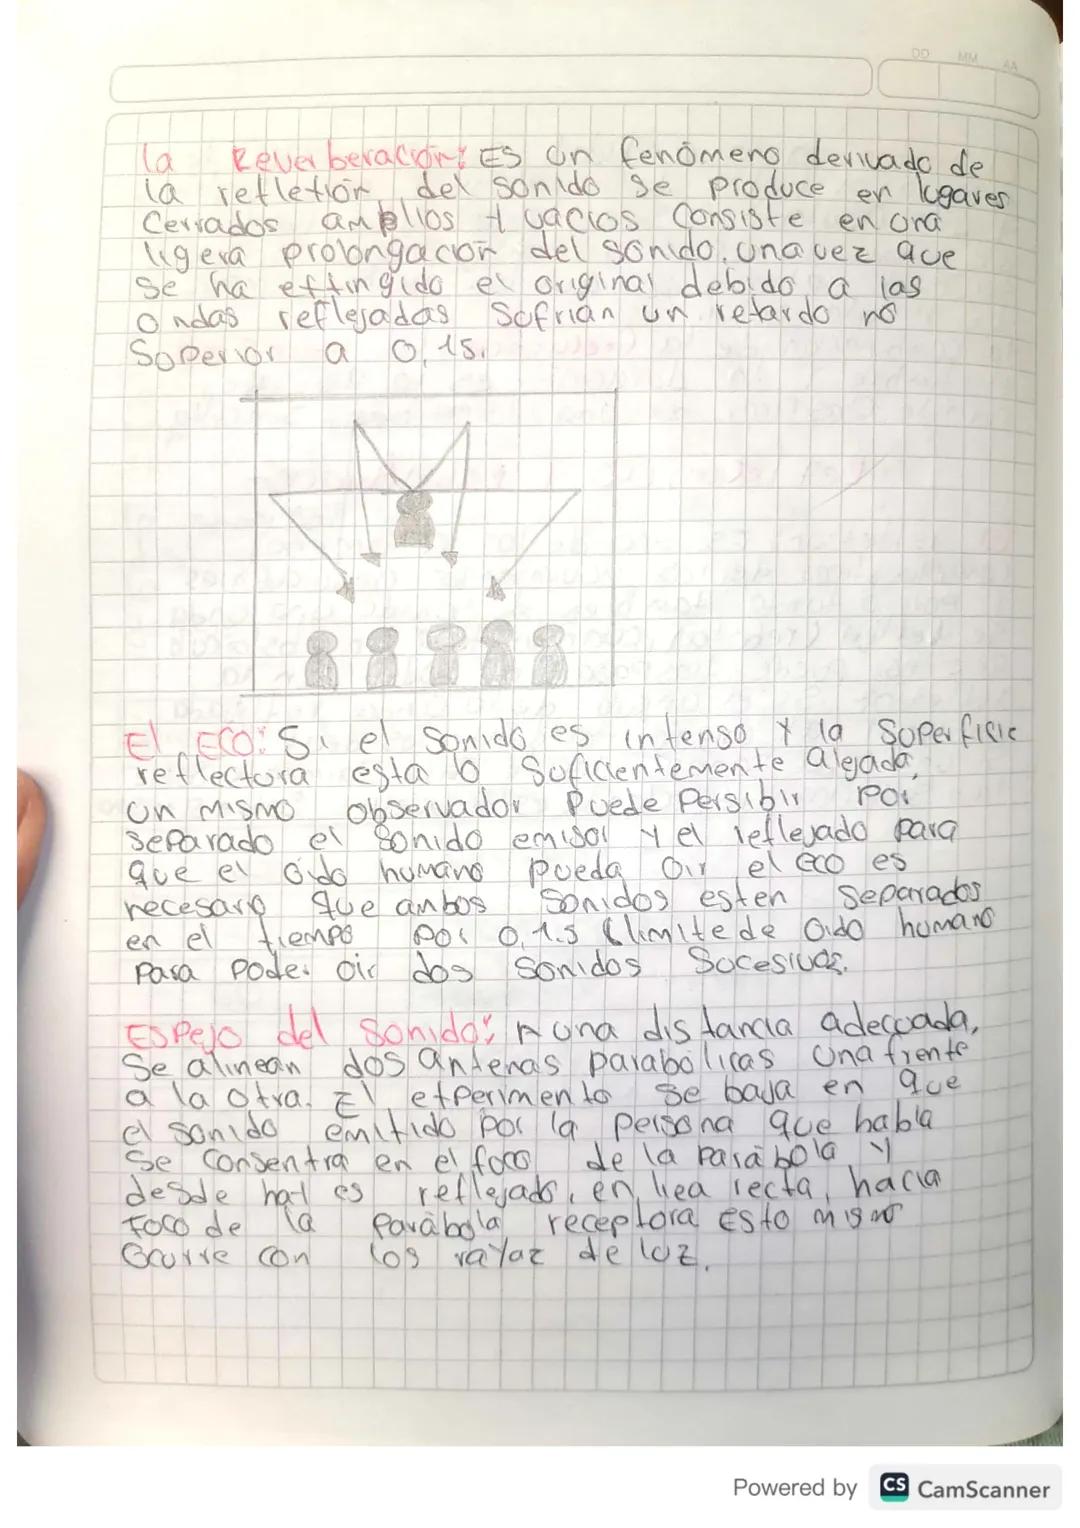 DD MM AA
la Reverberación: Es un fenómeno derivado de
la refletión del sonido se produce en lugares
Cerrados amplios y vacios Consiste en una
ligera prolongación del sonido. una vez que
se ha extingido el original debido a las
Ondas reflejadas Sofrian un retardo no
Soperior a 0,1s.
El ECO: Si el Sonido es intenso y la Superficie
reflectora esta lo Suficientemente alejada,
un mismo observador Puede Persibir Por
separado el sonido emisor y el reflejado para
que el oido humano pueda oir el eco es
necesario que ambos Sonidos esten Separados
en el tiempo por 0,1.s (limite de oido humano
Para Poder oir dos sonidos Sucesivos.
Espejo del Sonido: A una distancia adecuada,
Se alinean dos antenas parabólicas una frente
a la otra. El experimento se baja en que
el sonido emitido por la persona que habla
Se Consentra en el foco de la parábola y
desde hay es reflejado, en liea recta, hacia
Foco de la Parábola receptora Esto mismo
Ocurre con los rayaz de luz.
Powered by CS CamScanner